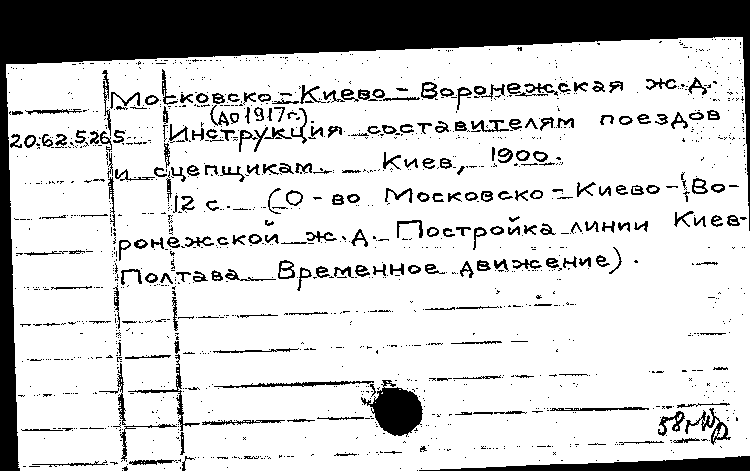 Московско-Киево-Воронежская ж.д.
(до 1917г.).
20.62.5265 Инструкция составителям поездов
и сцепщикам. Киев, 1900.
12 с. (О-во Московско-Киево-Во-
ронежской ж.д. Постройка линии Киев-
Полтава Временное движение).